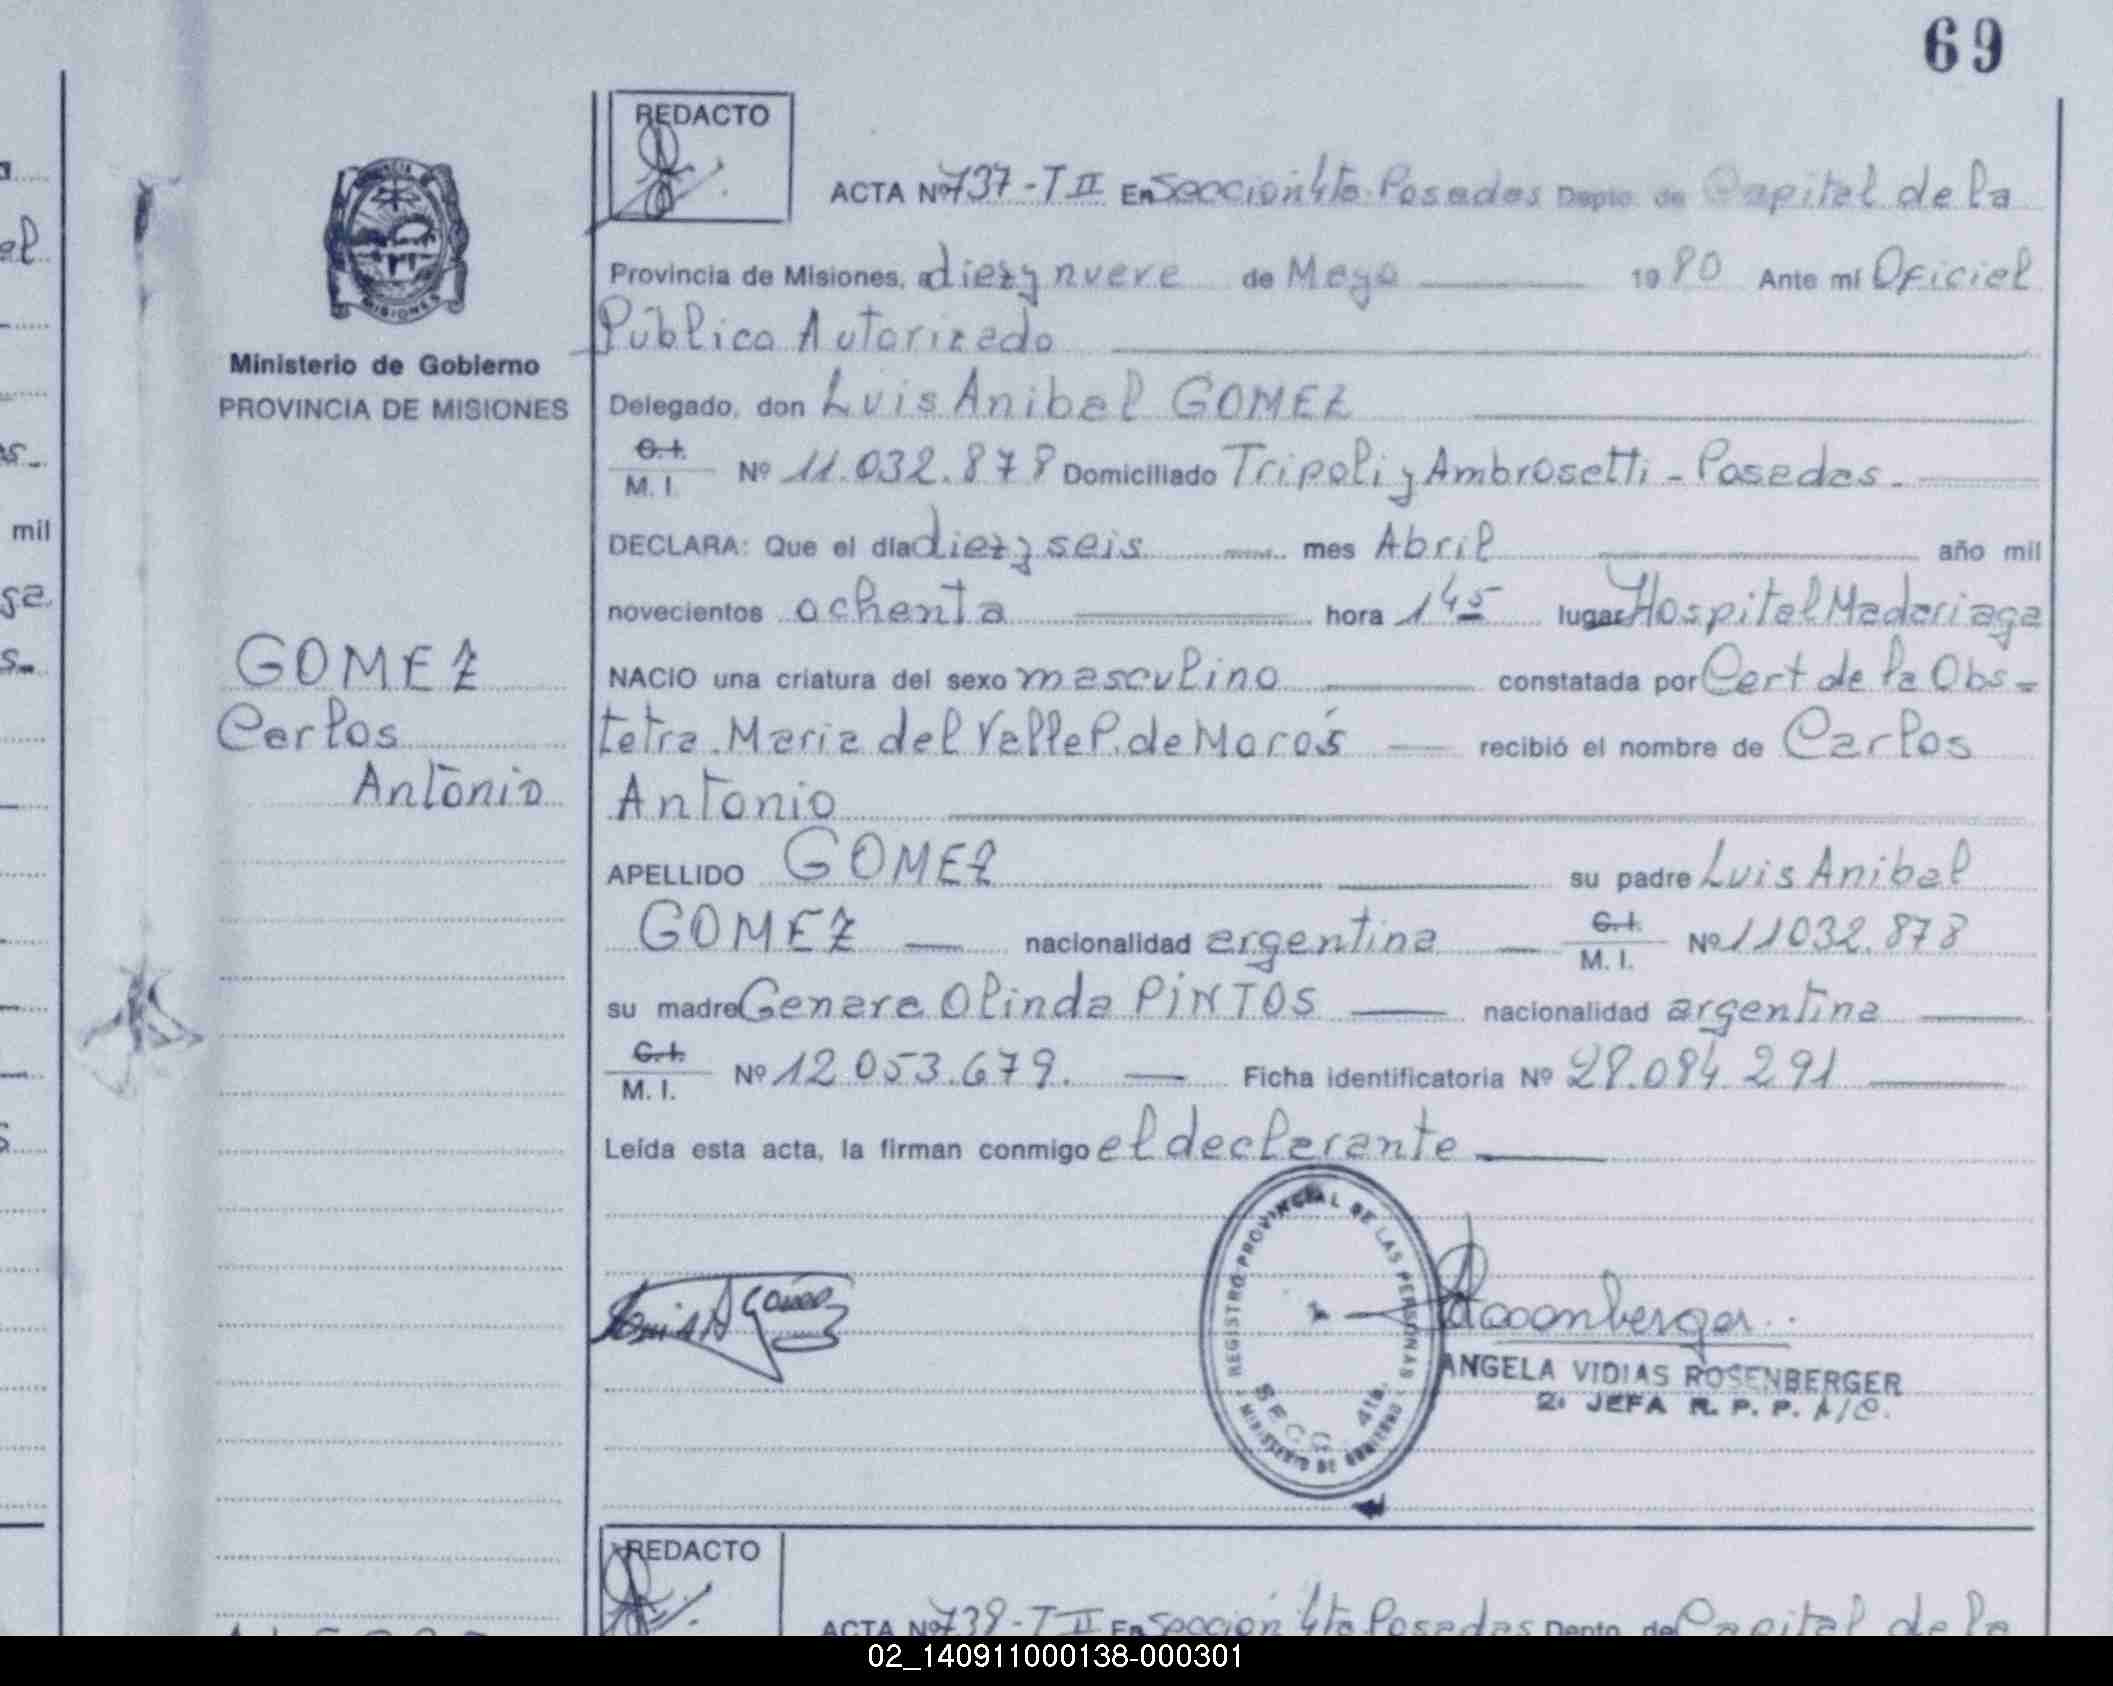 69
REDACTO
ACTA Nº 737-T II En Sección 4ta. Posadas Depto. de Capital de la
Provincia de Misiones, a diez y nueve de Mayo 1980 Ante mí Oficial
Público Autorizado
Ministerio de Gobierno
PROVINCIA DE MISIONES
Delegado, don Luis Anibal GOMEZ
C.I.
M. I. Nº 11.032.878 Domiciliado Tripoli y Ambrosetti - Posadas.
DECLARA: Que el día diez y seis mes Abril año mil
novecientos ochenta hora 1 45 lugar Hospital Madariaga
NACIO una criatura del sexo masculino constatada por Cert de la Obs-
tetra. Maria del Valle P. de Morós recibió el nombre de Carlos
Antonio
GOMEZ
Carlos
Antonio
APELLIDO GOMEZ su padre Luis Anibal
GOMEZ nacionalidad argentina C.I.
M. I. Nº 11032.878
su madre Genara Olinda PINTOS nacionalidad argentina
C.I.
M. I. Nº 12.053.679. Ficha identificatoria Nº 28.084.291
Leída esta acta, la firman conmigo el declarante
REGISTRO PROVINCIAL DE LAS PERSONAS
SECC. 4ta.
MINISTERIO DE GOBIERNO
ANGELA VIDIAS ROSENBERGER
2ª JEFA R. P. P. A/C.
REDACTO
ACTA Nº 738-T II En Sección 4ta Posadas Depto. de Capital de la
mil
02_140911000138-000301